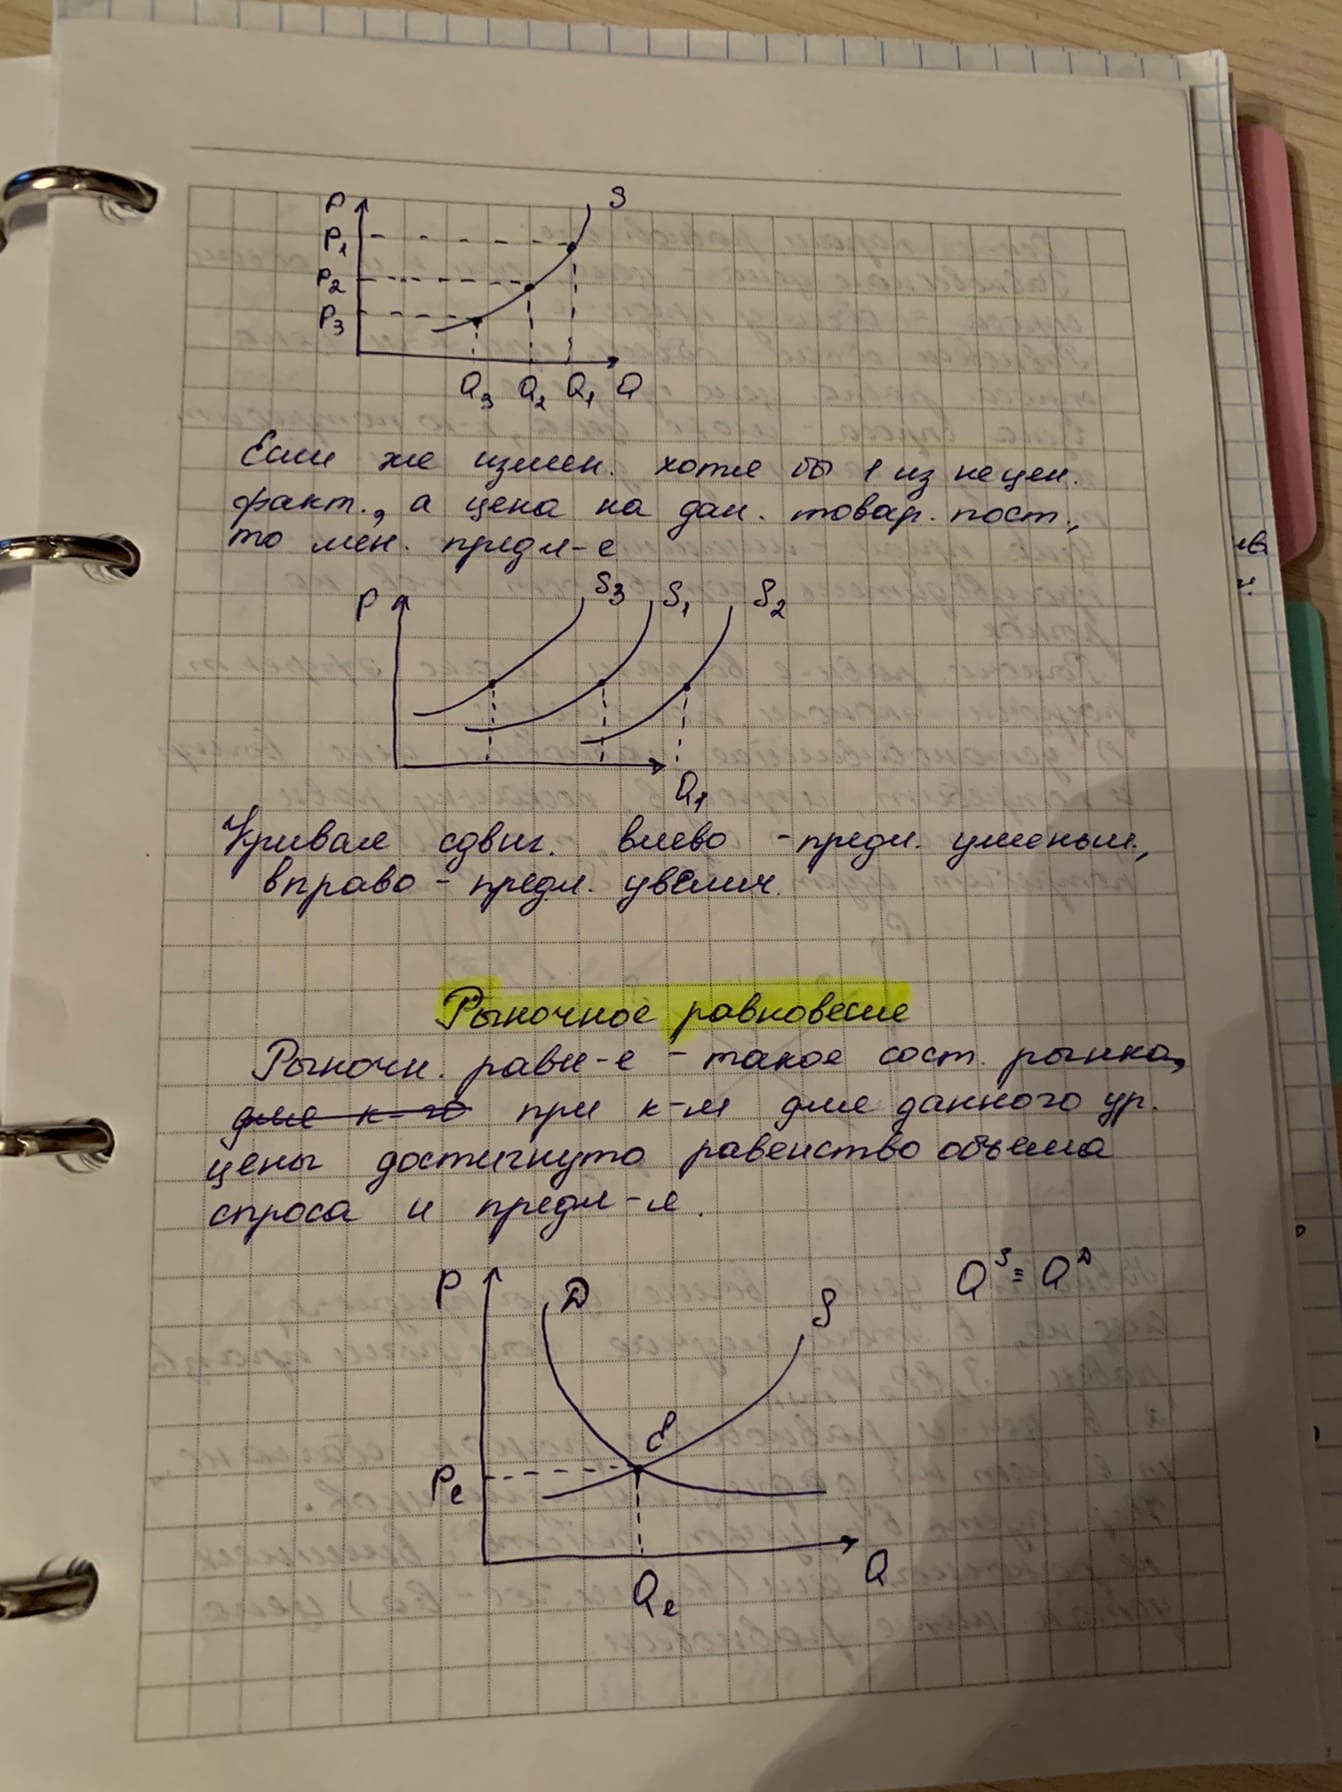 P S
P1
P2
P3
Q3 Q2 Q1 Q
Если же измен. хотя бы 1 из нецен.
факт., а цена на дан. товар. пост.,
то мен. предл-е
P S3 S1 S2
Q1
Кривая сдвиг. влево - предл. уменьш.,
вправо - предл. увелич.
Рыночное равновесие
Рыночн. равн-е - такое сост. рынка,
для к-го при к-м для данного ур.
цены достигнуто равенство объема
спроса и предл-я.
P D S Q^S = Q^D
E
Pe
Q
Qe